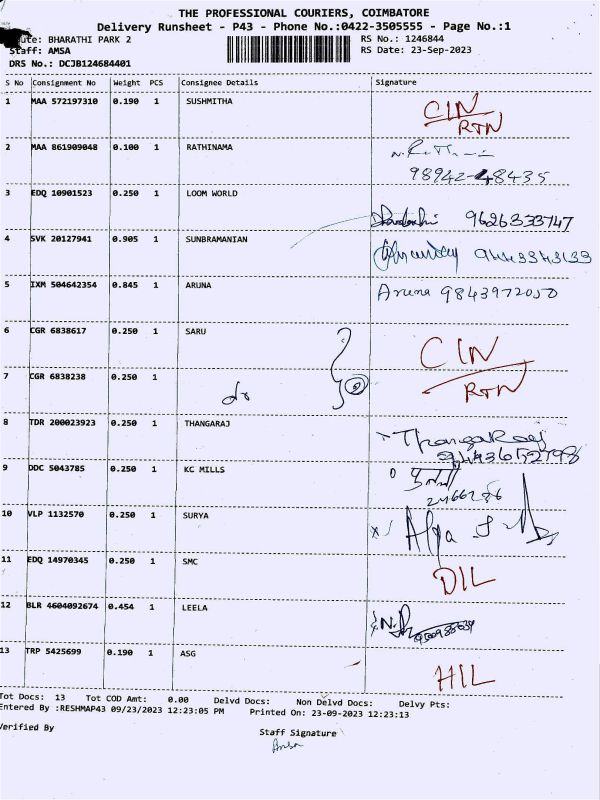 THE PROFESSIONAL COURIERS, COIMBATORE
Delivery Runsheet - P43 - Phone No.:0422-3505555 - Page No.:1
ute: BHARATHI PARK 2
RS No.: 1246844
Staff: AMSA
RS Date: 23-Sep-2023
DRS No.: DCJB124684401
S No Consignment No Weight PCS Consignee Details Signature
1 MAA 572197310 0.190 1 SUSHMITHA CIN
RTN
2 MAA 861909048 0.100 1 RATHINAMA
98942-48435
3 EDQ 10901523 0.250 1 LOOM WORLD
9626333747
4 SVK 20127941 0.905 1 SUNBRAMANIAN
5 IXM 504642354 0.845 1 ARUNA Aruna 9843972050
6 CGR 6838617 0.250 1 SARU CIN
7 CGR 6838238 0.250 1 do 2 RTN
8 TDR 200023923 0.250 1 THANGARAJ ThangaRaj
9 DDC 5043785 0.250 1 KC MILLS
10 VLP 1132570 0.250 1 SURYA
11 EDQ 14970345 0.250 1 SMC DIL
12 BLR 4604092674 0.454 1 LEELA
13 TRP 5425699 0.190 1 ASG HIL
Tot Docs: 13 Tot COD Amt: 0.00 Delvd Docs: Non Delvd Docs: Delvy Pts:
Entered By :RESHMAP43 09/23/2023 12:23:05 PM Printed On: 23-09-2023 12:23:13
Verified By
Staff Signature
Amsa